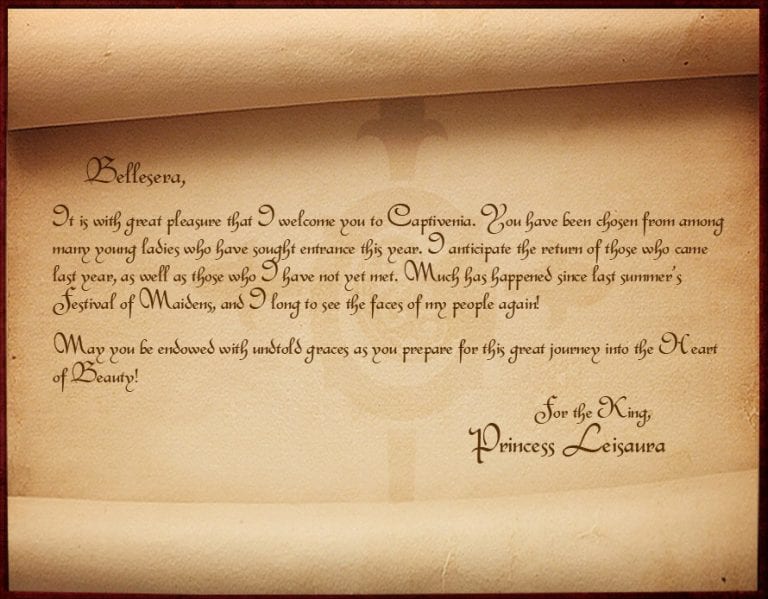 Bellesera,
It is with great pleasure that I welcome you to Captivenia. You have been chosen from among
many young ladies who have sought entrance this year. I anticipate the return of those who came
last year, as well as those who I have not yet met. Much has happened since last summer's
Festival of Maidens, and I long to see the faces of my people again!
May you be endowed with undtold graces as you prepare for this great journey into the Heart
of Beauty!
For the King,
Princess Leisaura